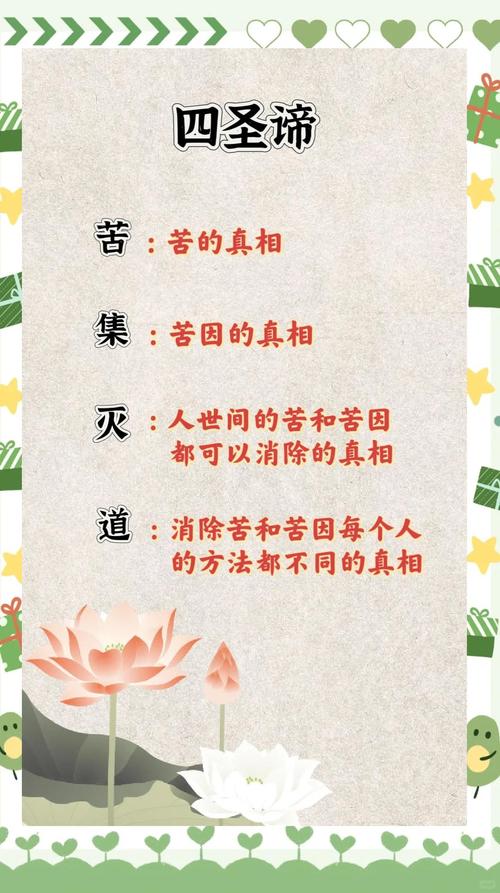 四圣谛
苦：苦的真相
集：苦因的真相
灭：人世间的苦和苦因
都可以消除的真相
道：消除苦和苦因每个人
的方法都不同的真相